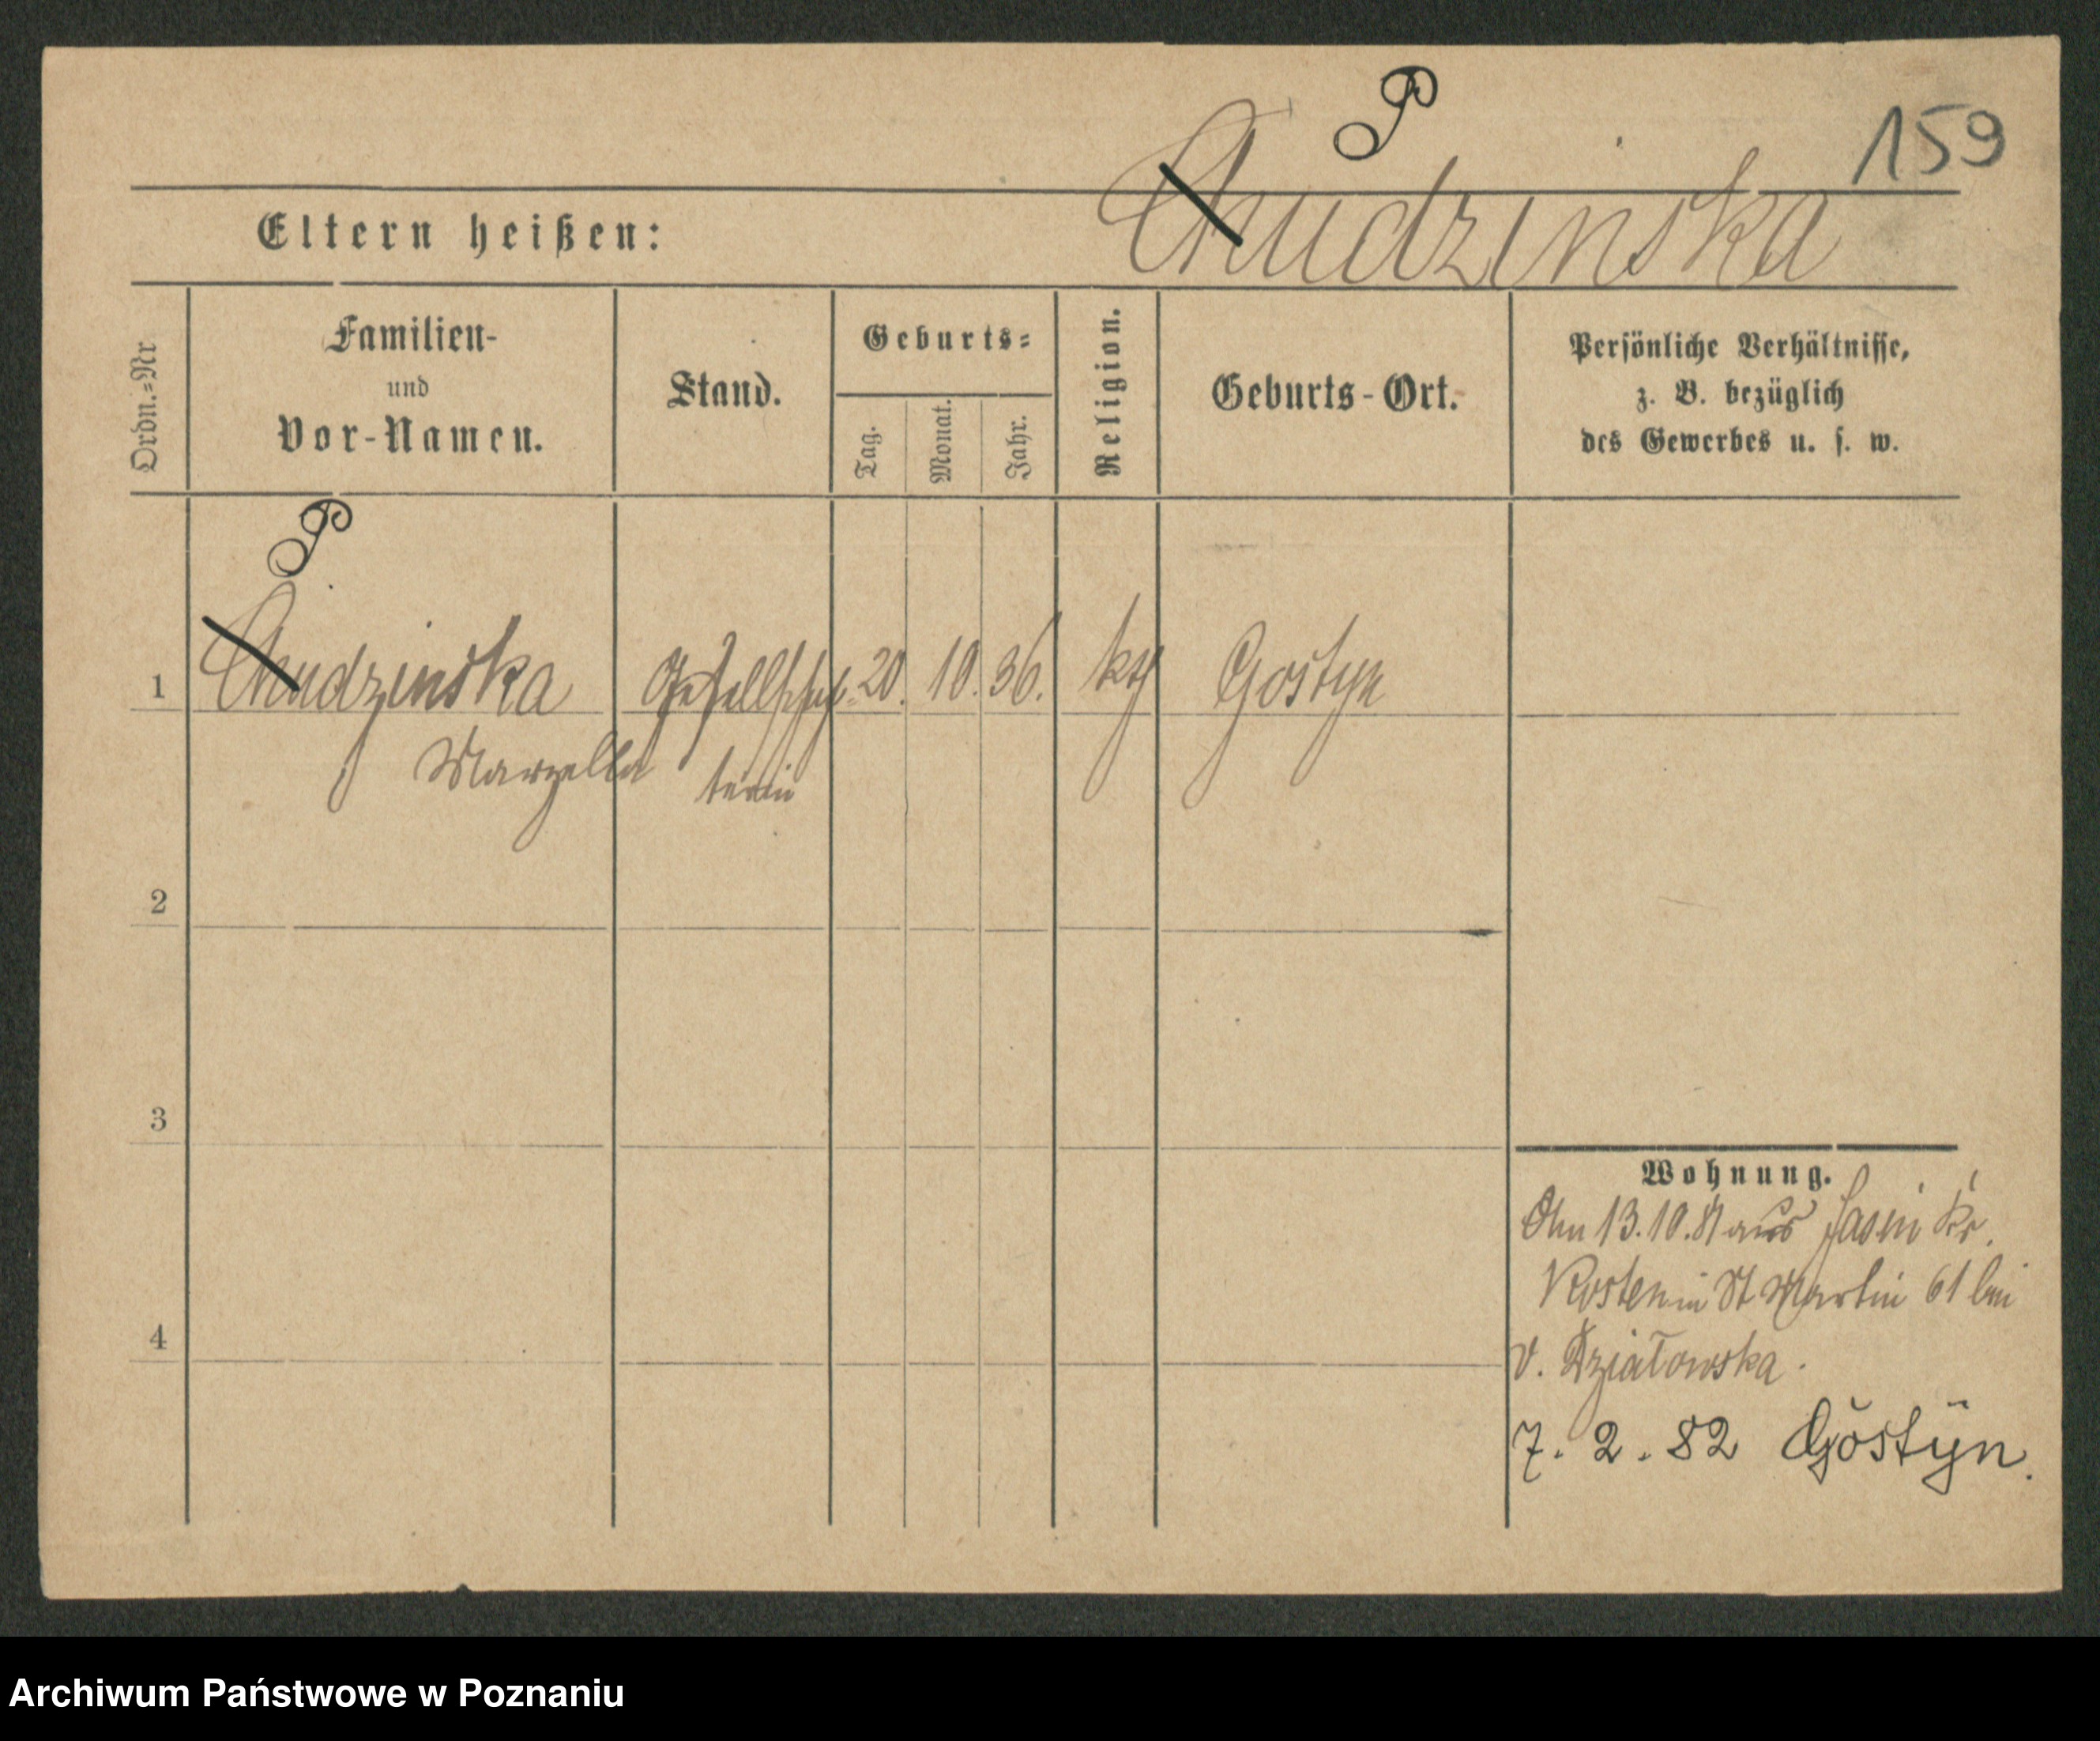 P
159
Chudzinska
Eltern heißen:
Ordn.=Nr
Familien-
und
Vor-Namen.
Stand.
Geburts=
Tag.
Monat.
Jahr.
Religion.
Geburts-Ort.
Persönliche Verhältnisse,
z. B. bezüglich
des Gewerbes u. s. w.
P
1 Chudzinska Gesellschaf- 20. 10. 36. kth Gostyn
Marzella terin
2
3
4
Wohnung.
13.10.81 aus Jasin Kr.
Kosten in St Martin 61 bei
v. Działowska.
7. 2. 82 Gostyn.
Archiwum Państwowe w Poznaniu